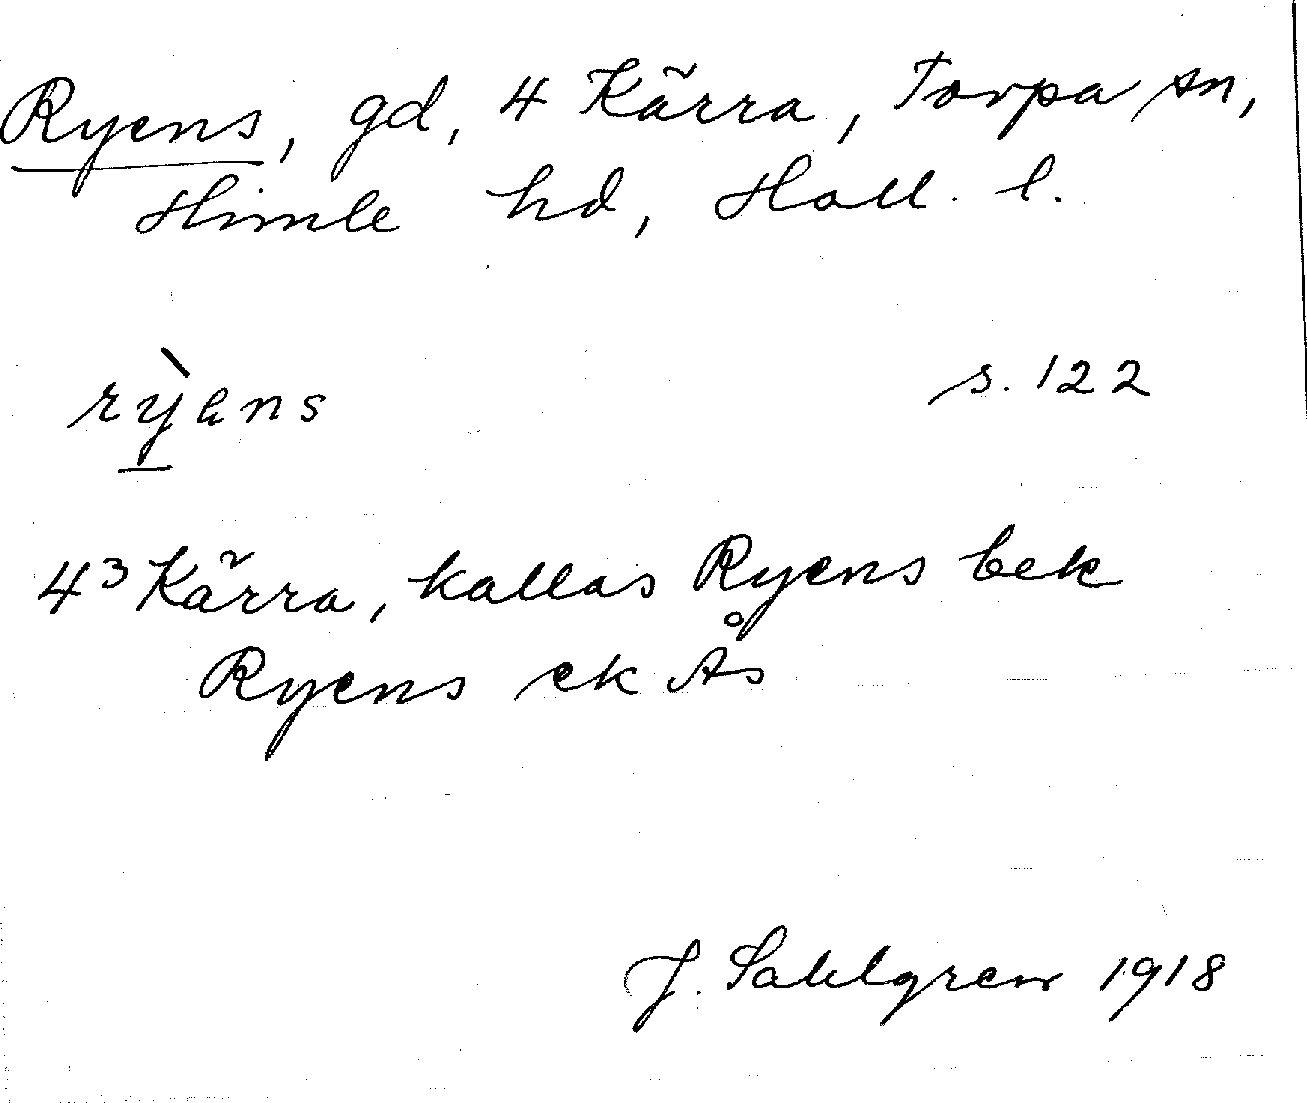 Ryens, gd, 4 Kärra, Torpa sn,
Himle hd, Hall. l.
rỳens s. 122
4³ Kärra, kallas Ryens bek
Ryens ek Ås
J. Sahlgren 1918